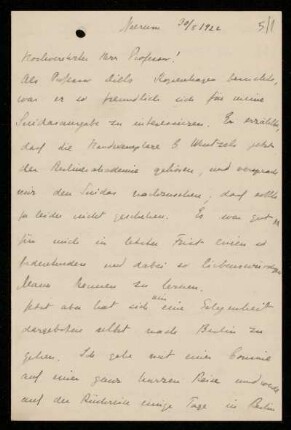 Neerum 30/5 1922 5/1
Hochverehrter Herr Professor!
Als Professor Diels Kopenhagen besuchte,
war er so freundlich sich für meine
Suidasausgabe zu interessieren. Er erzählte,
daß die Handexemplare C. Wentzels jetzt
der Berlinerakademie gehören, und versprach
mir den Suidas nachzusehen, das sollte
ja leider nicht geschehen. Es war gut
für mich in letzter Frist einen so
bedeutenden und dabei so liebenswürdigen
Mann kennen zu lernen.
Jetzt aber hat sich mir eine Gelegenheit
dargeboten selbst nach Berlin zu
gehen. Ich gehe mit einer Cousine
auf einer ganz kurzen Reise und werde
auf der Rückreise einige Tage in Berlin